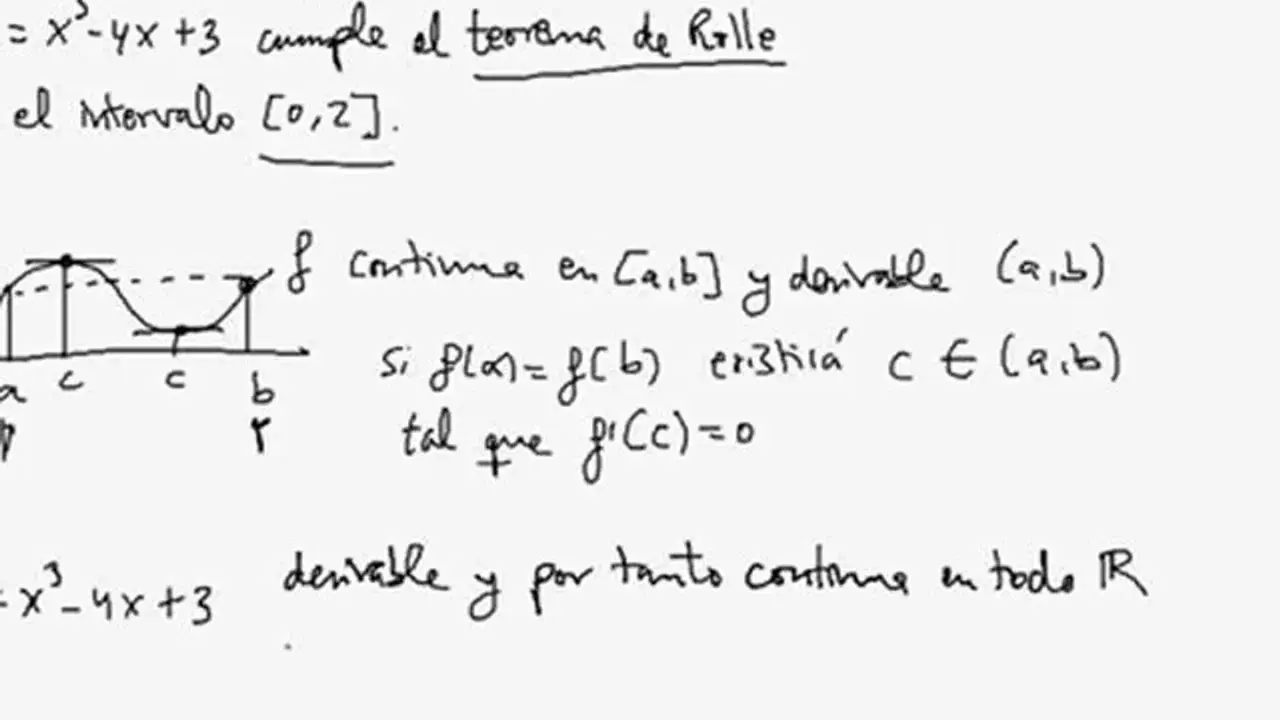 = x³-4x+3 cumple el teorema de Rolle
el intervalo [0,2].
f continua en [a,b] y derivable (a,b)
si f(a)= f(b) existirá c ∈ (a,b)
a c c b
tal que f'(c)=0
= x³-4x+3 derivable y por tanto continua en todo ℝ